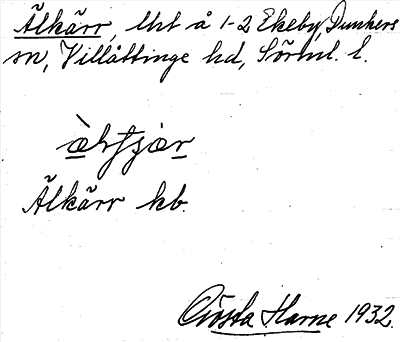 Älkärr, lht å 1-2 Ekeby, Dunkers
sn, Villåttinge hd, Sörml. l.
Älkärr kb.
Gösta Harne 1932.